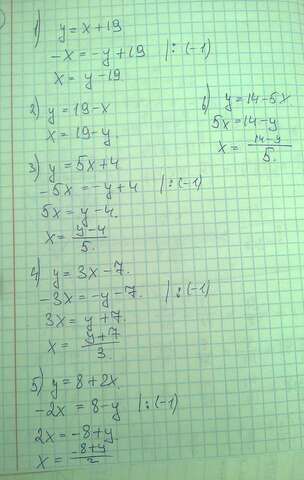 1) y = x + 19
-x = -y + 19 | : (-1)
x = y - 19
2) y = 19 - x
x = 19 - y.
3) y = 5x + 4
-5x = -y + 4 | : (-1)
5x = y - 4.
x = (y - 4)/5.
4) y = 3x - 7.
-3x = -y - 7. | : (-1)
3x = y + 7.
x = (y + 7)/3
5) y = 8 + 2x.
-2x = 8 - y | : (-1)
2x = -8 + y.
x = (-8 + y)/2
6) y = 14 - 5x
5x = 14 - y
x = (14 - y)/5.